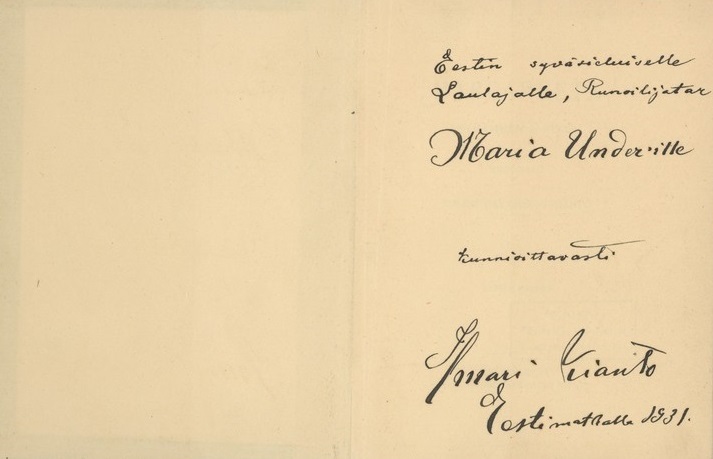 Eestin syväsieluiselle
Laulajalle, Runoilijatar
Maria Underille
kunnioittavasti
Ilmari Kianto
Eestimatkalla 1931.